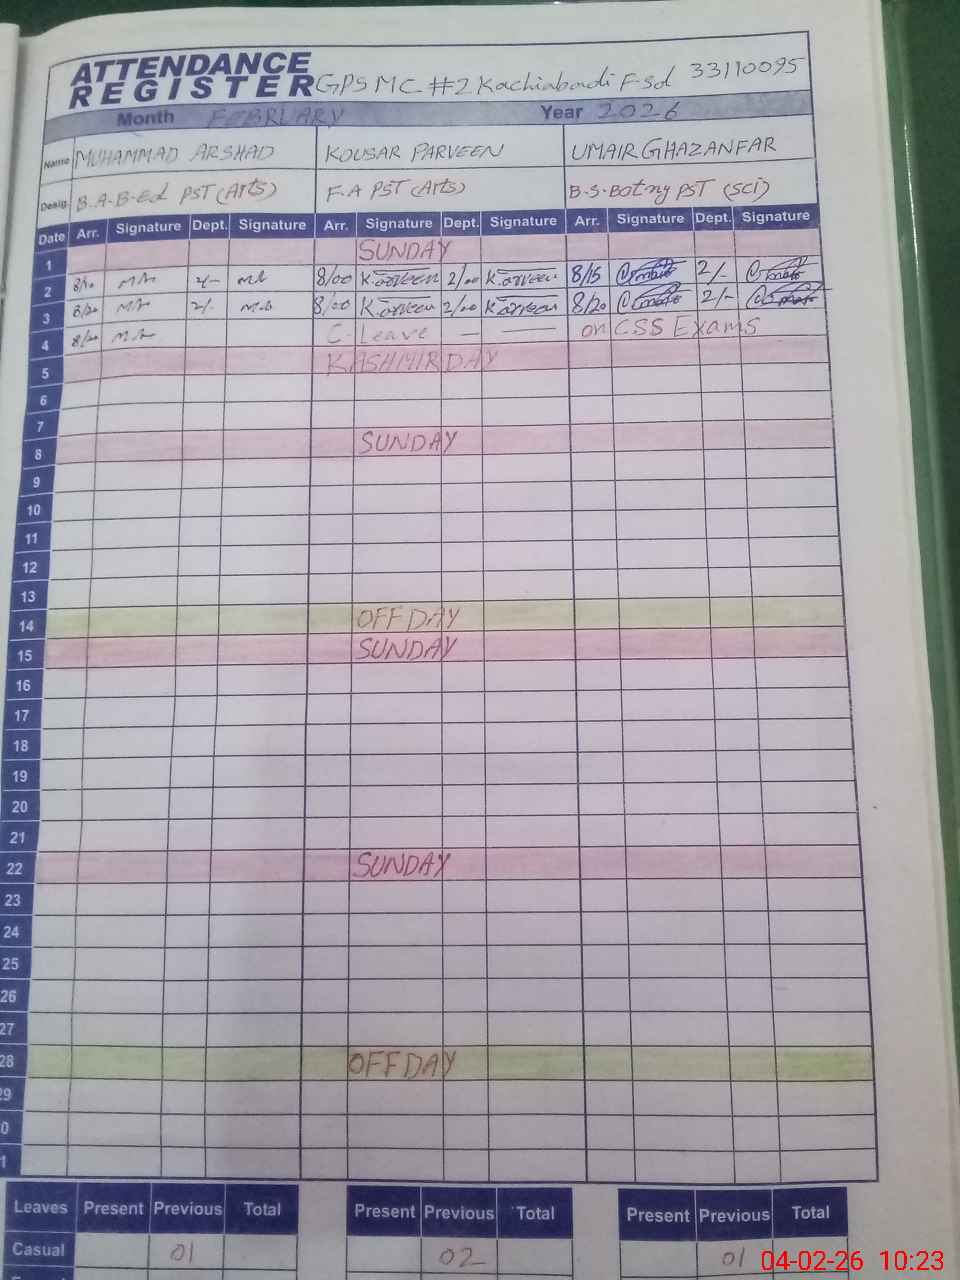 ATTENDANCE
REGISTER GPS MC #2 Kachiabadi F-sd 33110095
Month FEBRUARY Year 2026
Name MUHAMMAD ARSHAD KOUSAR PARVEEN UMAIR GHAZANFAR
Desig. B.A-B-Ed PST (Arts) F.A PST (Arts) B.S.Botny PST (Sci)
Date Arr. Signature Dept. Signature Arr. Signature Dept. Signature Arr. Signature Dept. Signature
1 SUNDAY
2 8/20 2/- 8/00 K.Parveen 2/00 K.Parveen 8/15 2/-
3 8/20 2/- 8/00 K.Parveen 2/00 K.Parveen 8/20 2/-
4 8/20 C-Leave — — on CSS Exams
5 KASHMIR DAY
6
7
8 SUNDAY
9
10
11
12
13
14 OFF DAY
15 SUNDAY
16
17
18
19
20
21
22 SUNDAY
23
24
25
26
27
28 OFF DAY
29
0
1
Leaves Present Previous Total Present Previous Total Present Previous Total
Casual 01 02 01
04-02-26 10:23